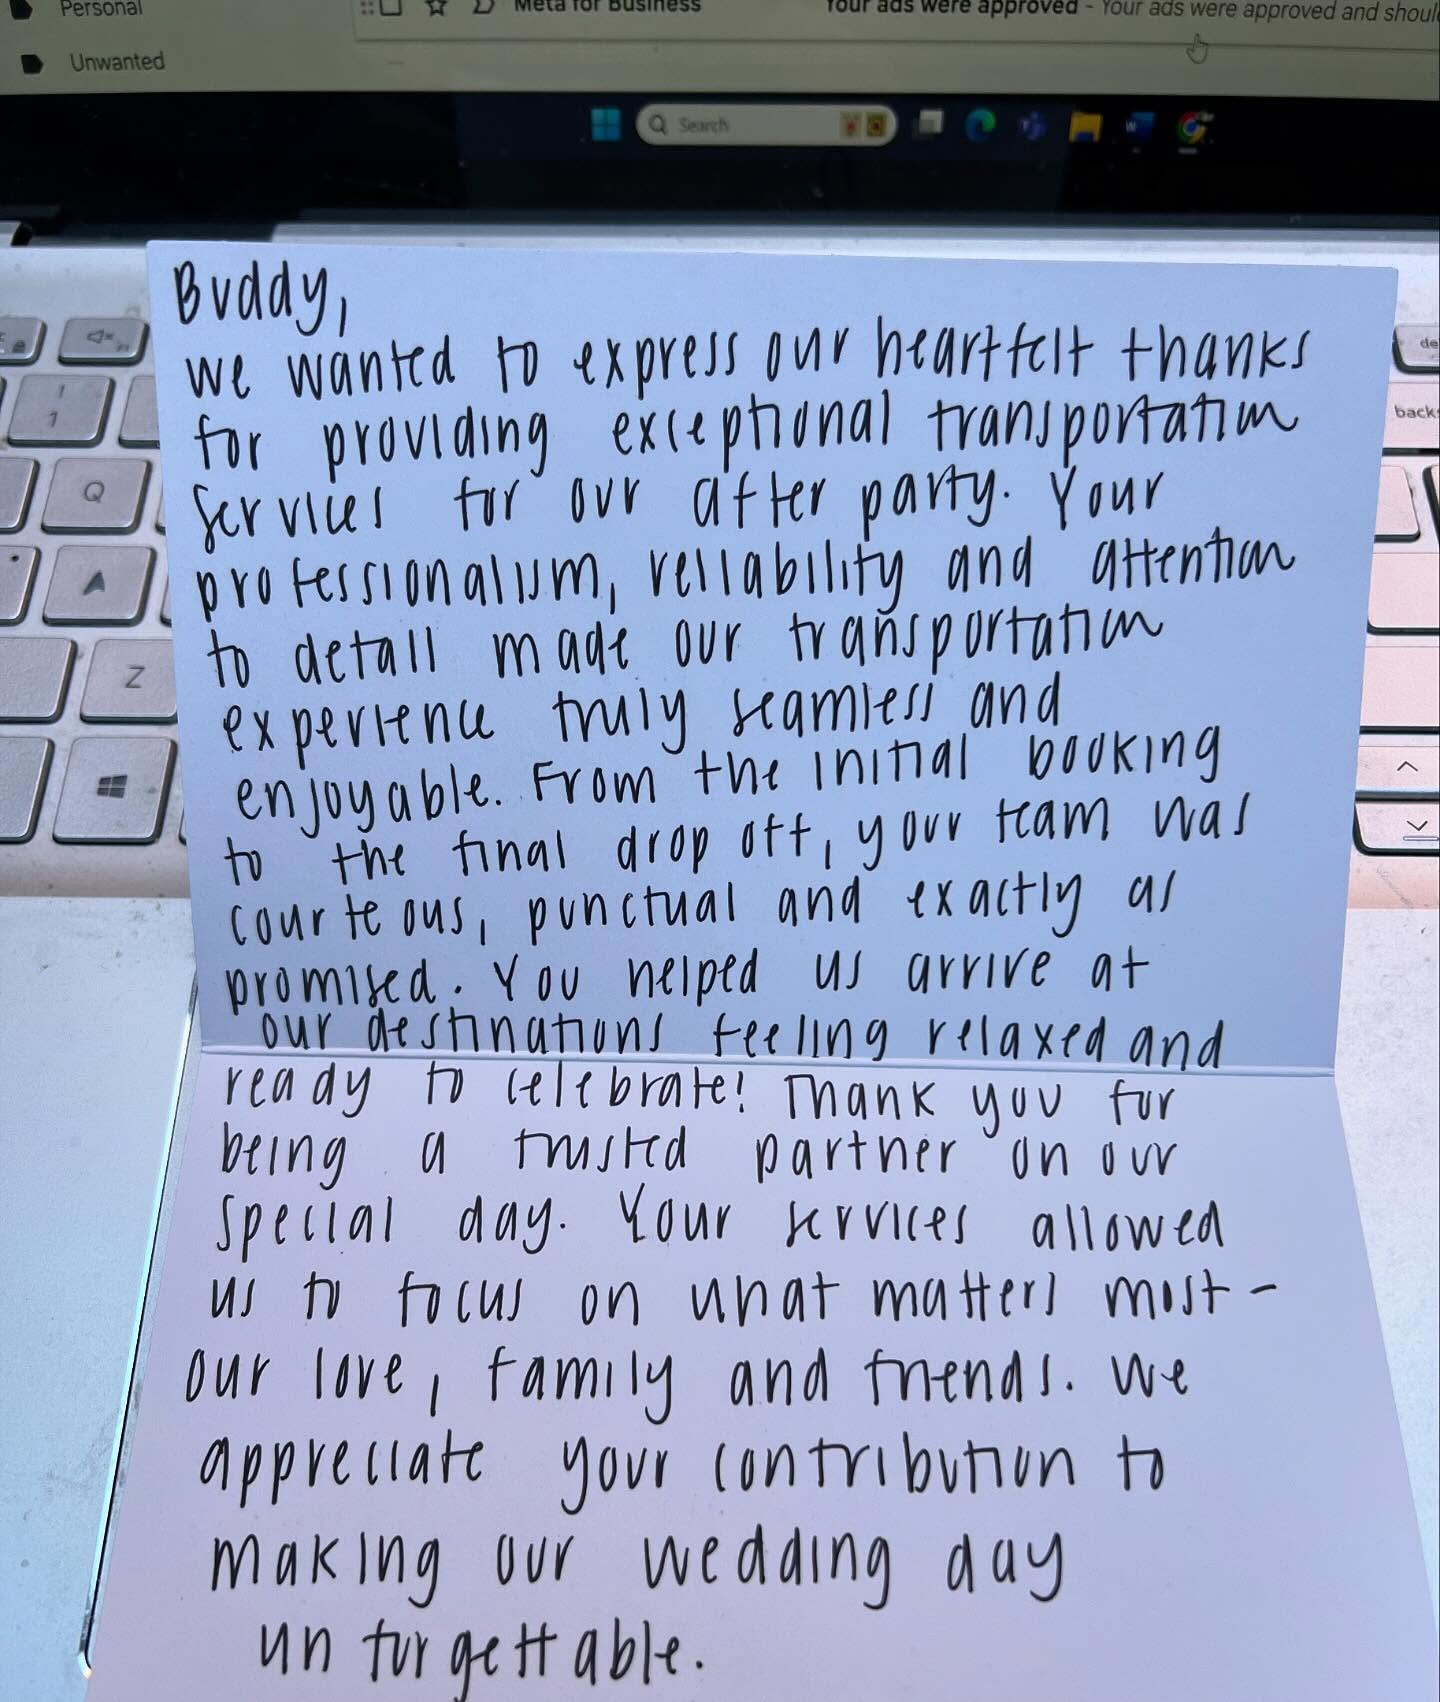 Personal
Meta for Business
Your ads were approved - Your ads were approved and shoul
Unwanted
Search
Buddy,
we wanted to express our heartfelt thanks
for providing exceptional transportation
services for our after party. Your
professionalism, reliability and attention
to detail made our transportation
experience truly seamless and
enjoyable. From the initial booking
to the final drop off, your team was
courteous, punctual and exactly as
promised. You helped us arrive at
our destinations feeling relaxed and
ready to celebrate! Thank you for
being a trusted partner on our
special day. Your services allowed
us to focus on what matters most -
our love, family and friends. We
appreciate your contribution to
making our wedding day
unforgettable.
1
1
Q
A
Z
de
back